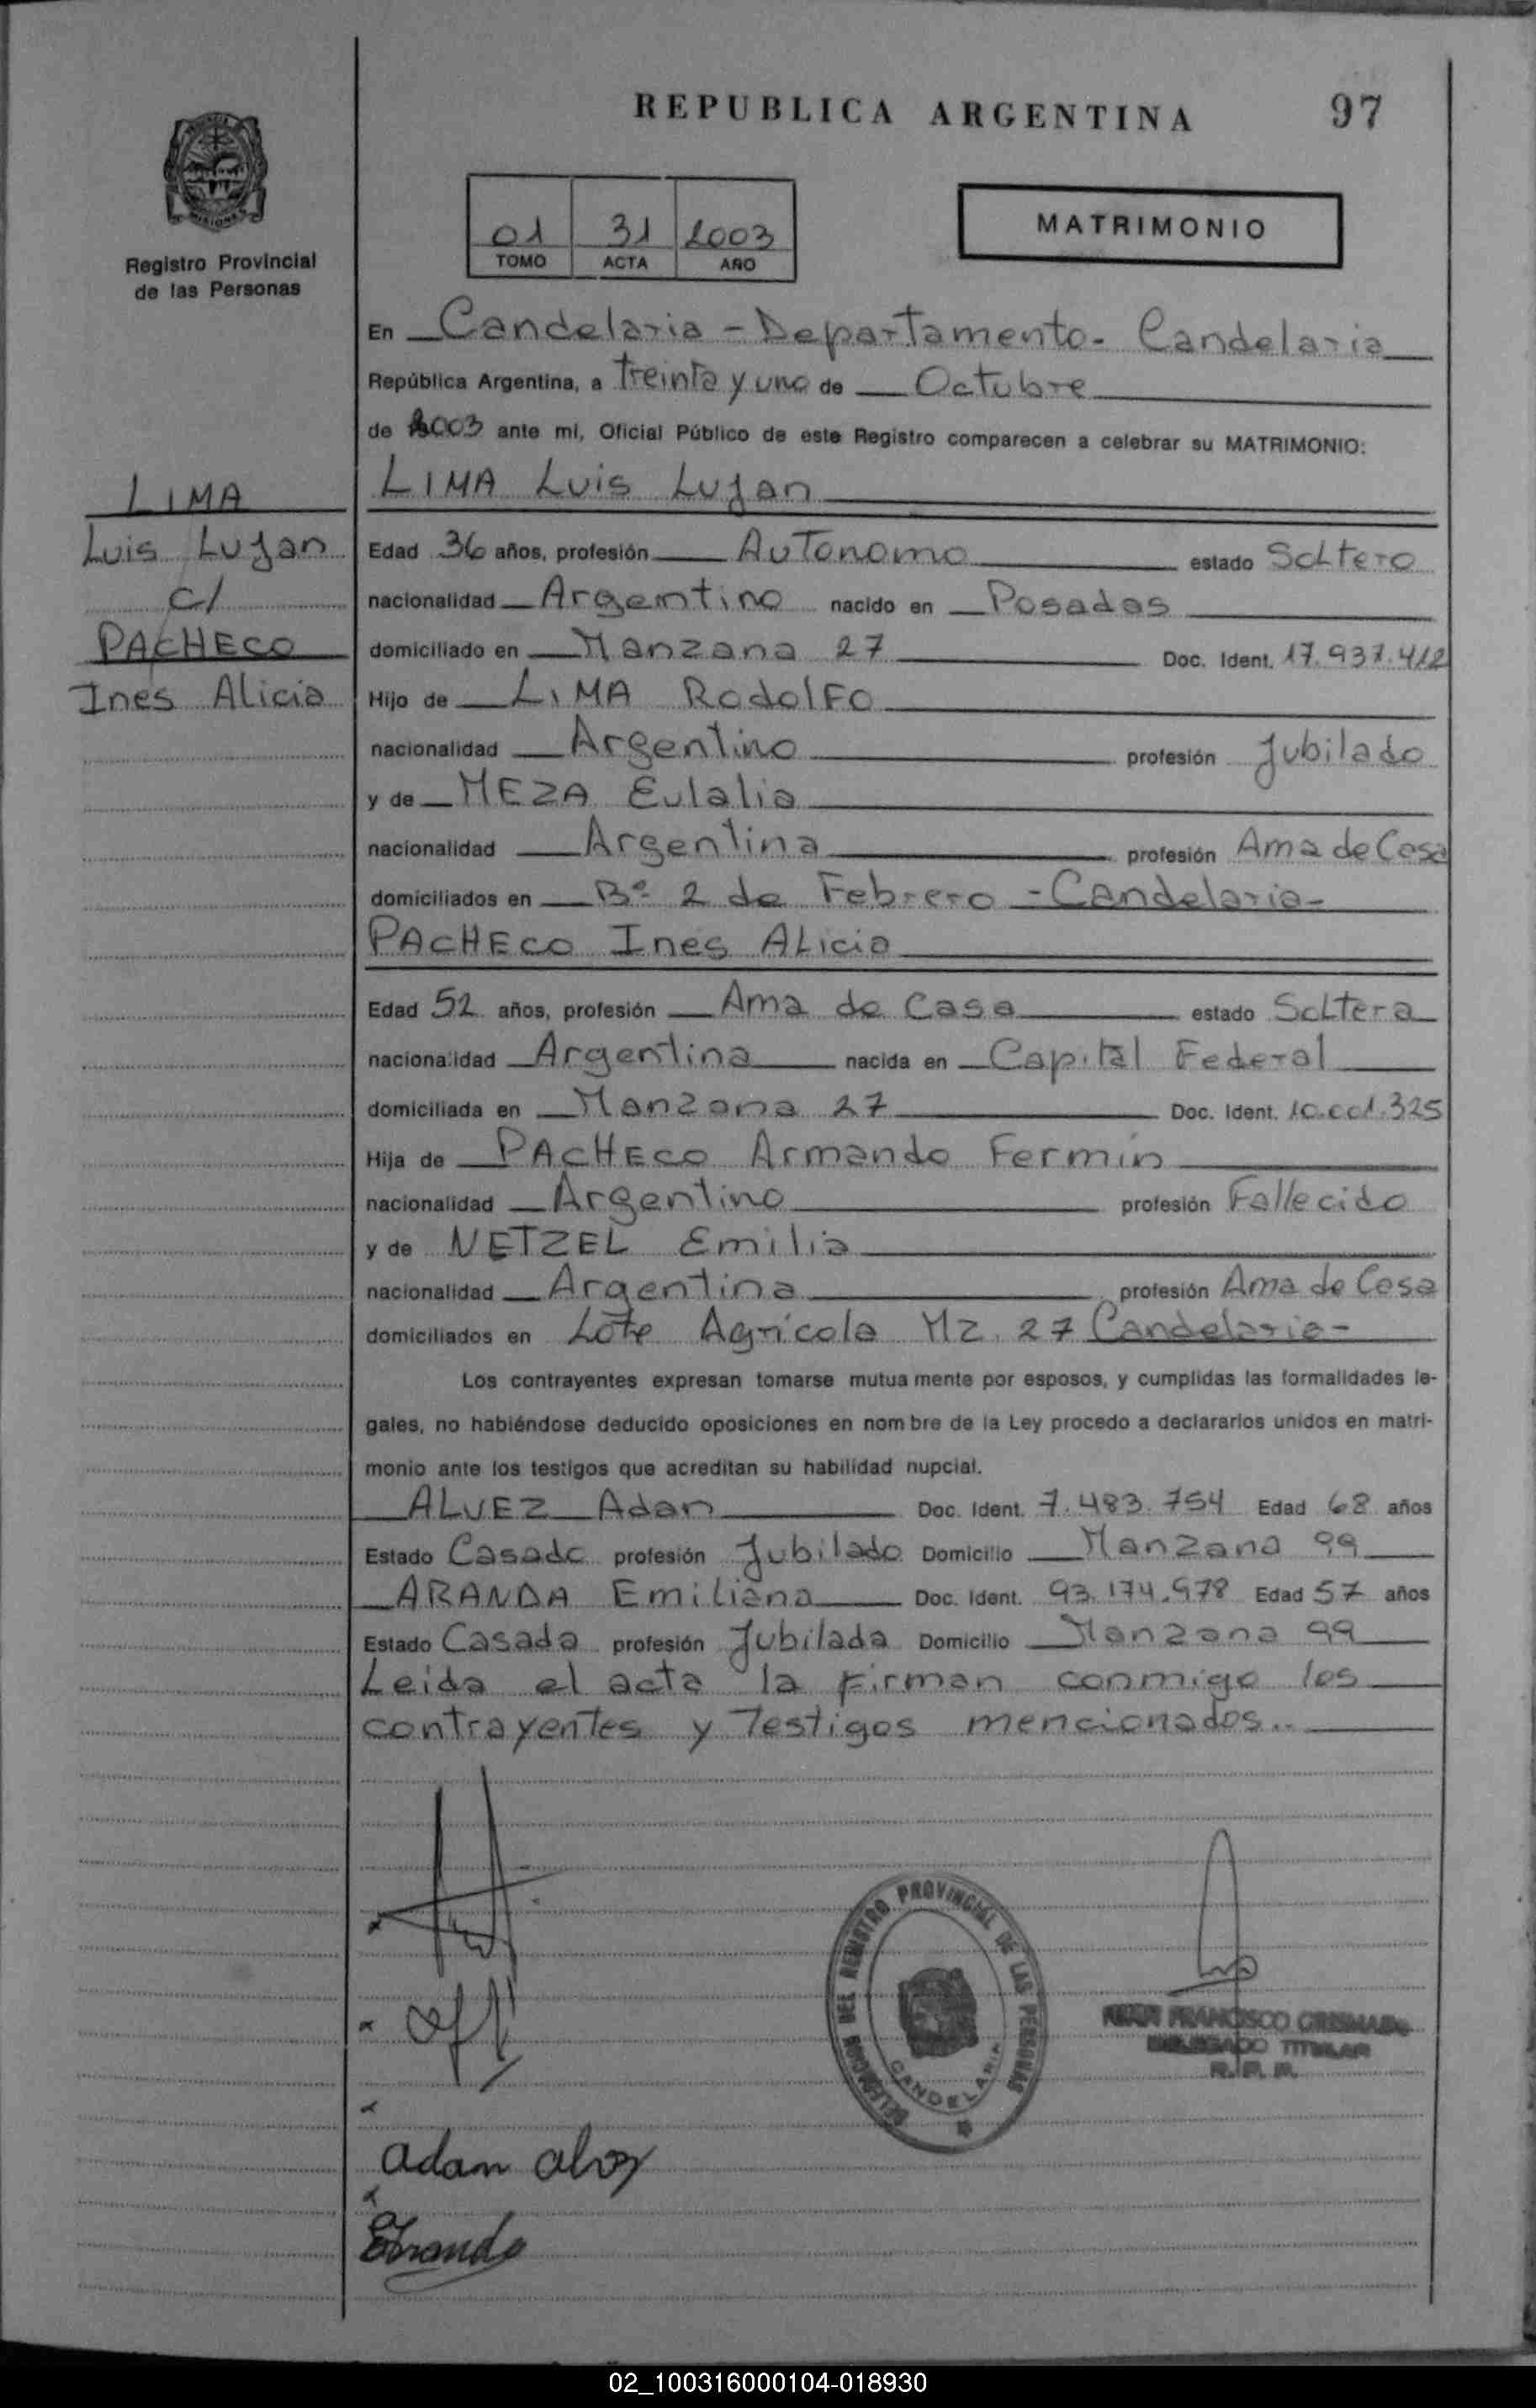 REPUBLICA ARGENTINA
97
MISIONES
Registro Provincial
de las Personas
01 31 2003
TOMO ACTA AÑO
MATRIMONIO
En Candelaria - Departamento - Candelaria
República Argentina, a treinta y uno de Octubre
de 2003 ante mí, Oficial Público de este Registro comparecen a celebrar su MATRIMONIO:
LIMA
Luis Lujan
c/
PACHECO
Ines Alicia
LIMA Luis Lujan
Edad 36 años, profesión Autonomo estado Soltero
nacionalidad Argentino nacido en Posadas
domiciliado en Manzana 27 Doc. Ident. 17.937.412
Hijo de LIMA Rodolfo
nacionalidad Argentino profesión Jubilado
y de MEZA Eulalia
nacionalidad Argentina profesión Ama de Casa
domiciliados en Bº 2 de Febrero - Candelaria -
PACHECO Ines Alicia
Edad 52 años, profesión Ama de Casa estado Soltera
nacionalidad Argentina nacida en Capital Federal
domiciliada en Manzana 27 Doc. Ident. 10.001.325
Hija de PACHECO Armando Fermín
nacionalidad Argentino profesión Fallecido
y de NETZEL Emilia
nacionalidad Argentina profesión Ama de Casa
domiciliados en Lote Agrícola Mz. 27 Candelaria -
Los contrayentes expresan tomarse mutua mente por esposos, y cumplidas las formalidades le-
gales, no habiéndose deducido oposiciones en nom bre de la Ley procedo a declararlos unidos en matri-
monio ante los testigos que acreditan su habilidad nupcial.
ALVEZ Adan Doc. Ident. 7.483.754 Edad 68 años
Estado Casado profesión Jubilado Domicilio Manzana 99
ARANDA Emiliana Doc. Ident. 93.174.978 Edad 57 años
Estado Casada profesión Jubilada Domicilio Manzana 99
Leida el acta la firman conmigo los
contrayentes y Testigos mencionados..
DELEGACION DEL REGISTRO PROVINCIAL DE LAS PERSONAS
CANDELARIA
FRANCISCO
DELEGADO TITULAR
R. P. P.
adan alvez
EAranda
02_100316000104-018930